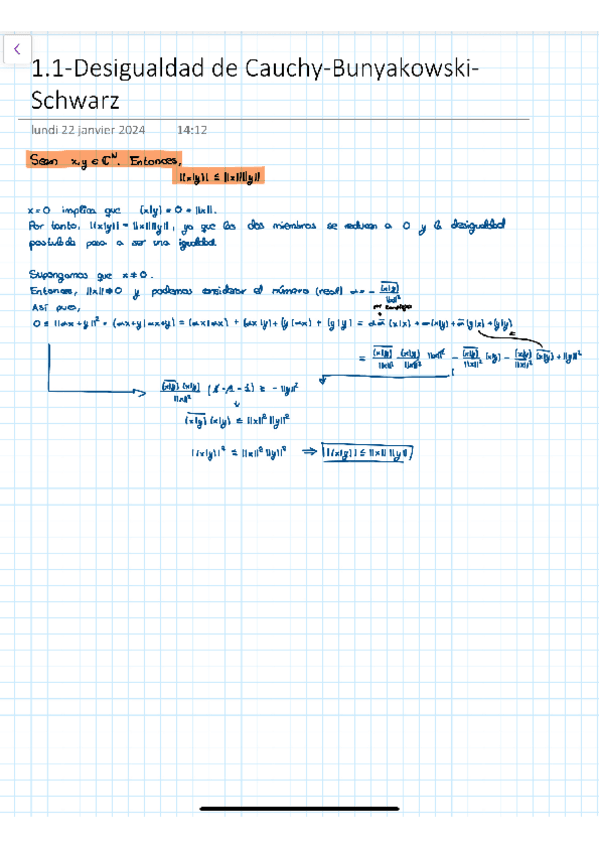 1.1-Desigualdad de Cauchy-Bunyakowski-
Schwarz
lundi 22 janvier 2024 14:12
Sean x,y ∈ ℂᴺ. Entonces,
|(x|y)| ≤ ||x|| ||y||
x=0 implica que (x|y) = 0 = ||x||.
Por tanto, |(x|y)| = ||x|| ||y||, ya que los dos miembros se reducen a 0 y la desigualdad
postulada pasa a ser una igualdad.
Supongamos que x≠0.
Entonces, ||x||≠0 y podemos considerar el número (real) α = - \overline{(x|y)}/||x||²
Así pues,
0 ≤ ||αx+y||² = (αx+y|αx+y) = (αx|αx) + (αx|y) + (y|αx) + (y|y) = αᾱ (x|x) + α(x|y) + ᾱ (y|x) + (y|y)
\overline{(x|y)} (x|y) ≤ ||x||² ||y||²
|(x|y)|² ≤ ||x||² ||y||² ⇒ |(x|y)| ≤ ||x|| ||y||